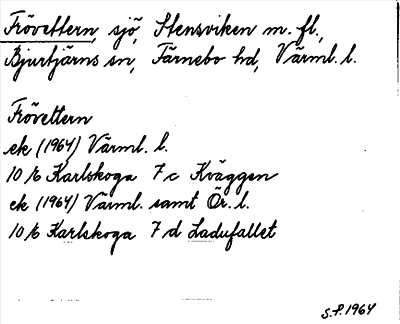 Frövettern, sjö, Stensviken m. fl.,
Bjurtjärns sn, Färnebo hd, Värml. l.
Frövettern
ek (1964) Värml. l.
10 E Karlskoga 7 c Kväggen
ek (1964) Värml. samt Ör. l.
10 E Karlskoga 7 d Ladufallet
S.P. 1964